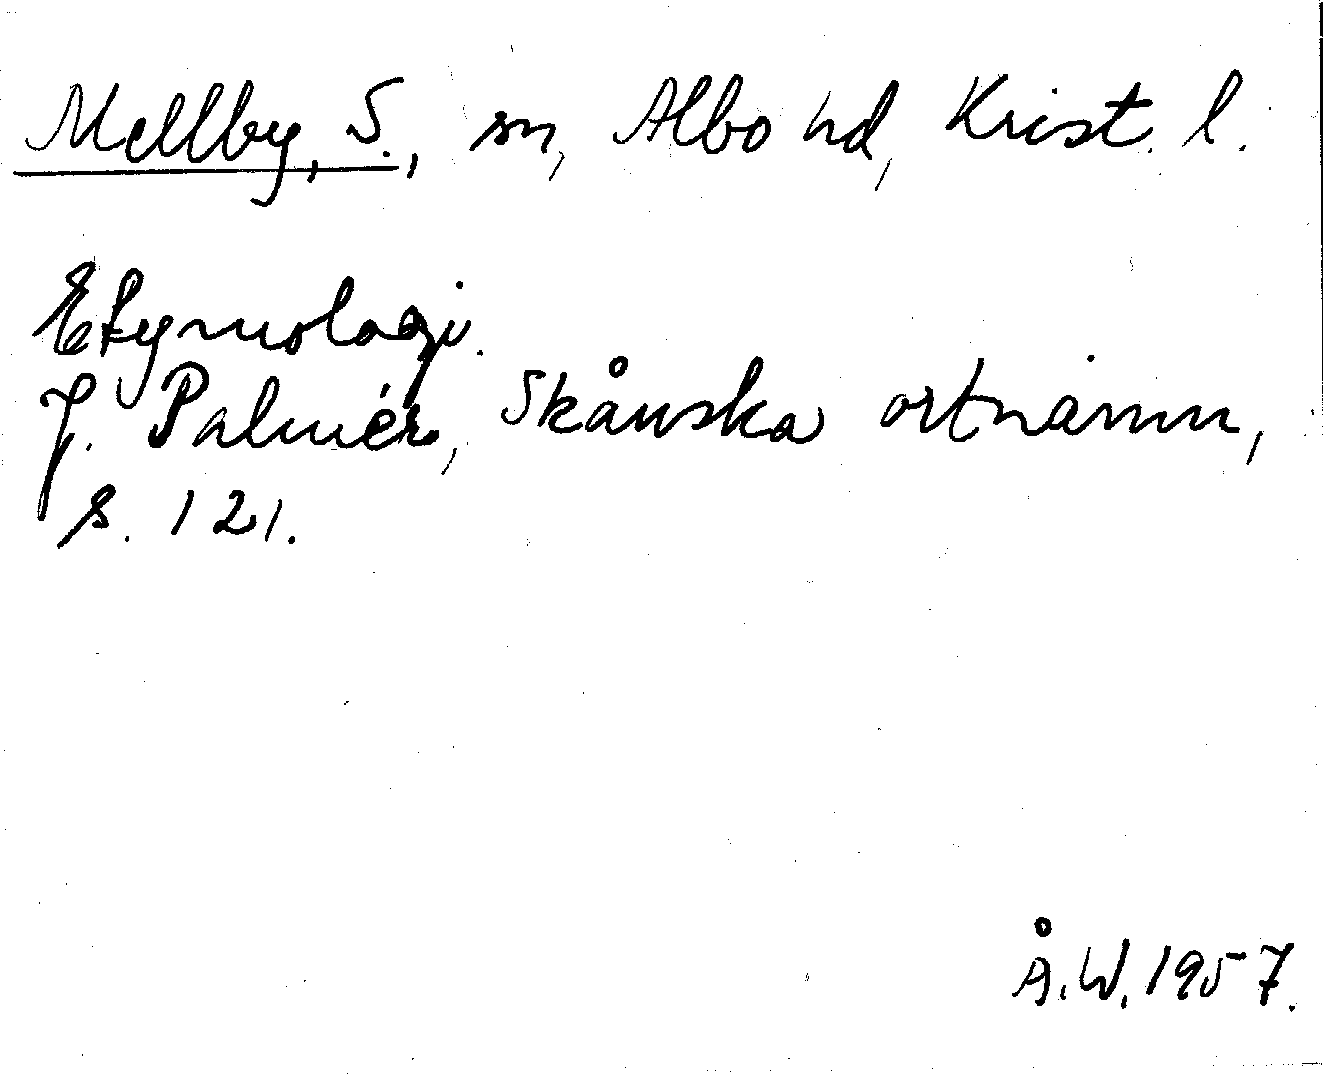 Mellby, S., sn, Albo hd, Krist. l.
Etymologi.
J. Palmér, Skånska ortnamn,
s. 121.
Å.W. 1957.